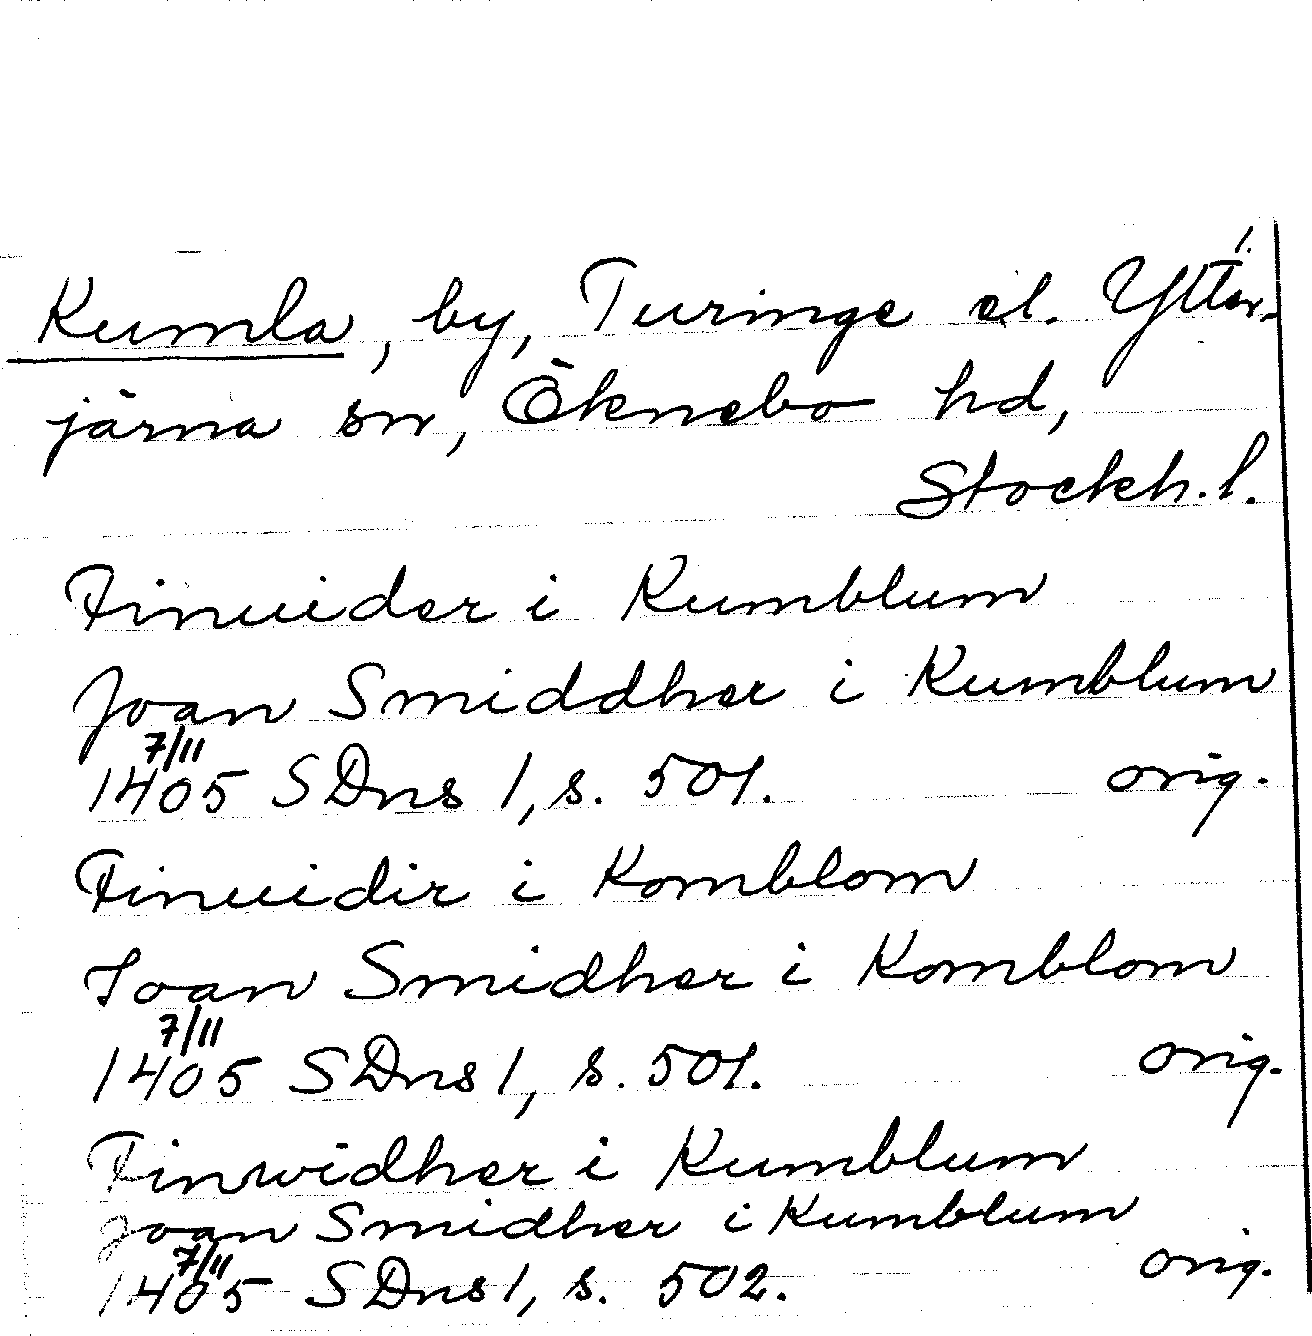 1.
Kumla, by, Turinge el. Ytter-
järna sn, Öknebo hd,
Stockh. l.
Finuider i Kumblum
Joan Smiddher i Kumblum
7/11
1405 SDns 1, s. 501. orig.
Finuidir i Komblom
Joan Smidher i Komblom
7/11
1405 SDns 1, s. 501. orig.
Finwidher i Kumblum
Joan Smidher i Kumblum
7/11
1405 SDns 1, s. 502. orig.